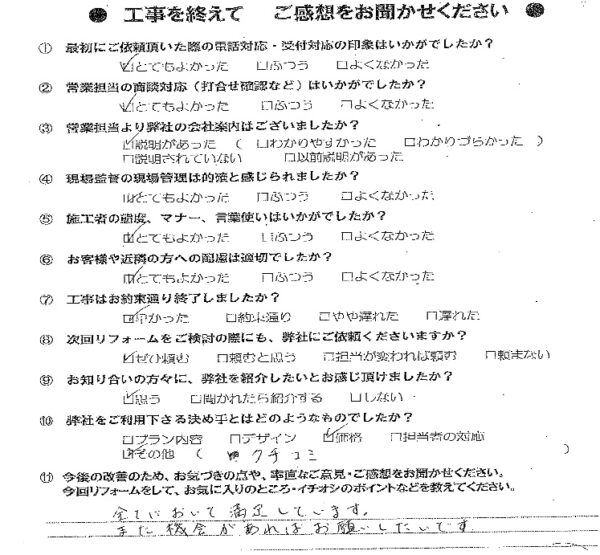 ● 工事を終えて ご感想をお聞かせください ●
① 最初にご依頼頂いた際の電話対応・受付対応の印象はいかがでしたか?
☑とてもよかった □ふつう □よくなかった
② 営業担当の商談対応(打合せ確認など)はいかがでしたか?
☑とてもよかった □ふつう □よくなかった
③ 営業担当より弊社の会社案内はございましたか?
☑説明があった ( □わかりやすかった □わかりづらかった )
□説明されていない □以前説明があった
④ 現場監督の現場管理は的確と感じられましたか?
☑とてもよかった □ふつう □よくなかった
⑤ 施工者の態度、マナー、言葉使いはいかがでしたか?
☑とてもよかった □ふつう □よくなかった
⑥ お客様や近隣の方への配慮は適切でしたか?
☑とてもよかった □ふつう □よくなかった
⑦ 工事はお約束通り終了しましたか?
☑早かった □約束通り □やや遅れた □遅れた
⑧ 次回リフォームをご検討の際にも、弊社にご依頼くださいますか?
☑ぜひ頼む □頼むと思う □担当が変われば頼む □頼まない
⑨ お知り合いの方々に、弊社を紹介したいとお感じ頂けましたか?
☑思う □聞かれたら紹介する □しない
⑩ 弊社をご利用下さる決め手とはどのようなものでしたか?
□プラン内容 □デザイン ☑価格 □担当者の対応
☑その他 ( クチコミ )
⑪ 今後の改善のため、お気づきの点や、率直なご意見・ご感想をお聞かせください。
今回リフォームをして、お気に入りのところ・イチオシのポイントなどを教えてください。
全てにおいて満足しています。
また機会があればお願いしたいです